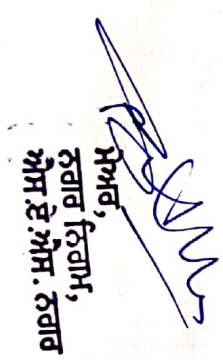 ਮੇਅਰ,
ਨਗਰ ਨਿਗਮ,
ਐਸ.ਏ.ਐਸ. ਨਗਰ